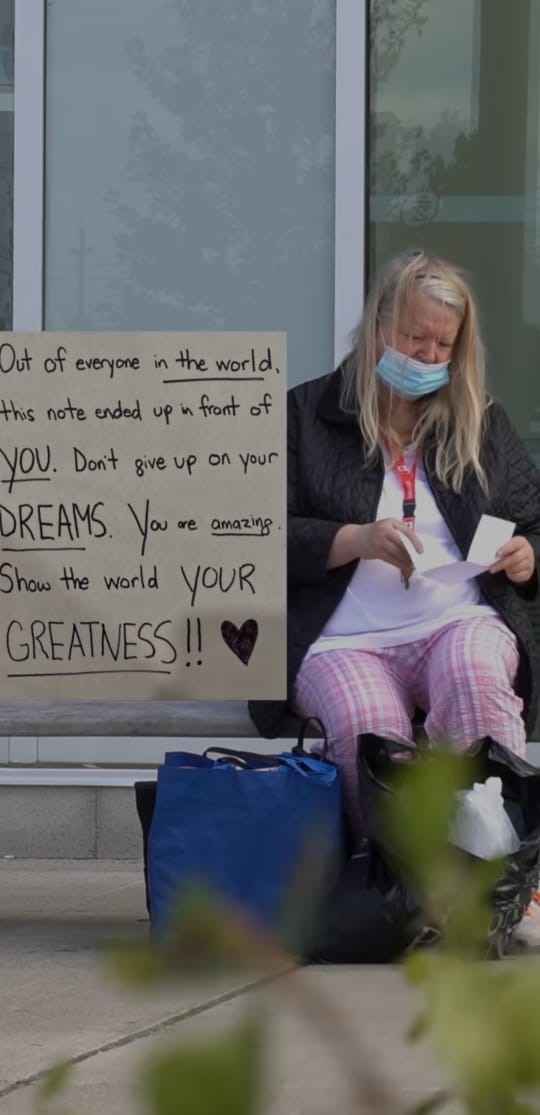 Out of everyone in the world,
this note ended up in front of
YOU. Don't give up on your
DREAMS. You are amazing.
Show the world YOUR
GREATNESS!!